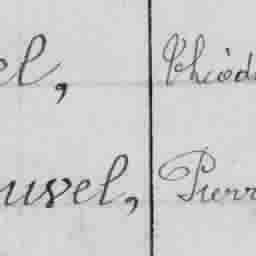 el, Théod
uvel, Pierr